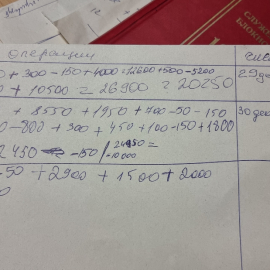 СЛУЖЕ
БЛОКН
операции
0 + 300 - 150 + 4000 - 12600 + 500 - 5200
0 + 10500 = 26900 = 20250
29 де
+ 8550 + 1950 + 700 - 50 - 150
30 дек
0 - 800 + 300 + 450 + 100 - 150 + 1800
2450 - 150 / 24950 =
- 10 000
- 50 + 2900 + 1500 + 2000
0